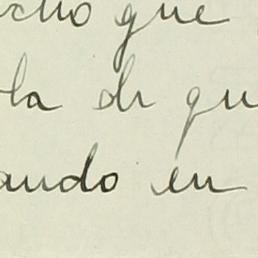 que
la de qu
ando en